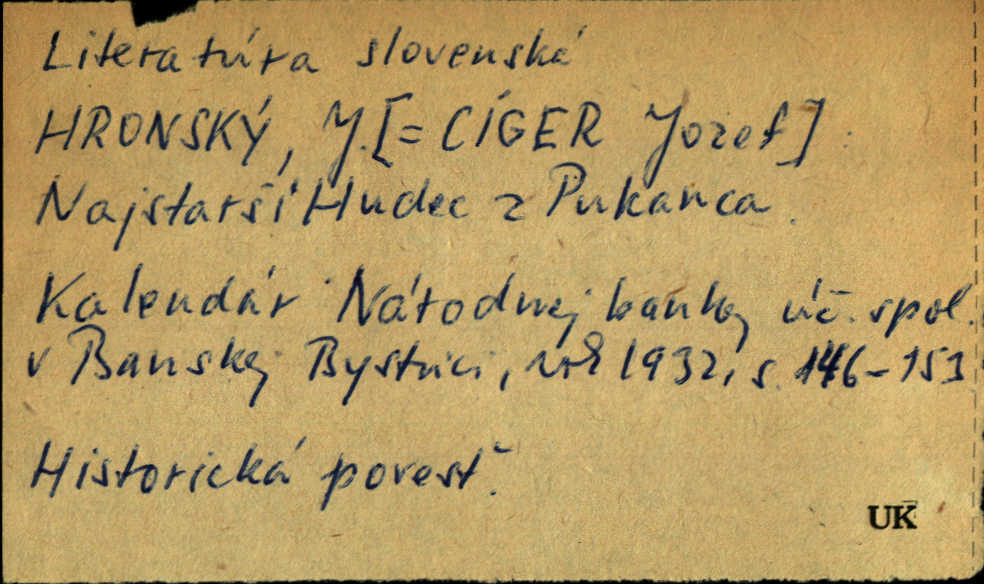 Literatúra slovenská
HRONSKÝ, J. [= CÍGER Jozef]
Najstarší Hudec z Pukanca.
Kalendár Národnej banky úč. spol.
v Banskej Bystrici, roč 1932, s. 146-153
Historická povesť.
UK